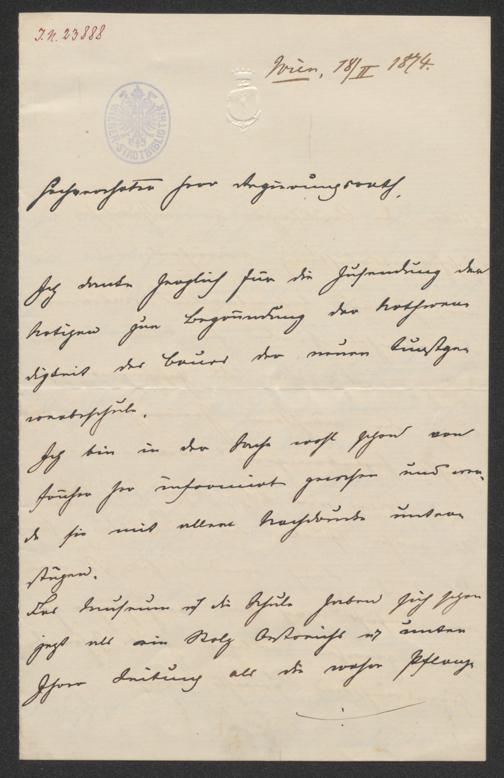 I.N. 23888
Wien, 18/II 1874.
WIENER STADTBIBLIOTHEK
Hochverehrter Herr Regierungsrath,
Ich danke herzlich für die Zusendung der
Notizen zur Begründung der Nothwen
digkeit des Baues der neuen Kunstge
werbeschule.
Ich bin in der Sache wohl schon von
früher her informirt gewesen und wer¬
de sie mit allem Nachdrucke unter
stützen.
Das Museum u die Schule haben sich schon
jetzt als ein Stolz Oestreichs u unter
Ihrer Leitung als die wahre Pflanz